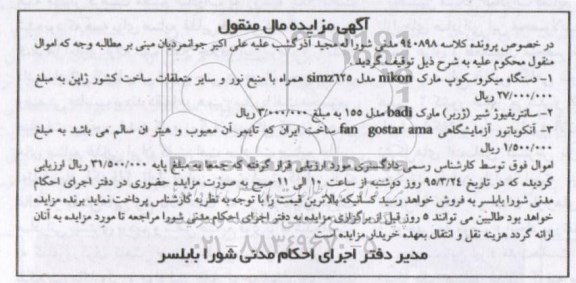 آگهی مزایده مال منقول
در خصوص پرونده کلاسه ۹۴۰۸۹۸ مدنی شورا له مجید آذرگشب علیه علی اکبر جوانمردیان مبنی بر مطالبه وجه که اموال
منقول محکوم علیه به شرح ذیل توقیف گردید.
۱- دستگاه میکروسکوپ مارک nikon مدل simz۶۲۵ همراه با منبع نور و سایر متعلقات ساخت کشور ژاپن به مبلغ
۲۷/۰۰۰/۰۰۰ ریال
۲- سانتریفیوژ شیر (ژربر) مارک badi مدل ۱۵۵ به مبلغ ۳/۰۰۰/۰۰۰ ریال
۳- آنکوباتور آزمایشگاهی fan gostar ama ساخت ایران که تایمر آن معیوب و هیتر ان سالم می باشد به مبلغ
۱/۵۰۰/۰۰۰ ریال
اموال فوق توسط کارشناس رسمی دادگستری مورد ارزیابی قرار گرفته که جمعا به مبلغ پایه ۳۱/۵۰۰/۰۰۰ ریال ارزیابی
گردیده که در تاریخ ۹۵/۳/۲۴ روز دوشنبه از ساعت ۱۰ الی ۱۱ صبح به صورت مزایده حضوری در دفتر اجرای احکام
مدنی شورا بابلسر به فروش خواهد رسید کسانیکه بالاترین قیمت را با توجه به نظریه کارشناس پرداخت نماید برنده مزایده
خواهد بود طالبین می توانند ۵ روز قبل از برگزاری مزایده به دفتر اجرای احکام مدنی شورا مراجعه تا مورد مزایده به آنان
ارائه گردد هزینه نقل و انتقال بعهده خریدار مزایده است.
مدیر دفتر اجرای احکام مدنی شورا بابلسر
۰۲۱-۸۸۳۴۹۶۷۰-۵